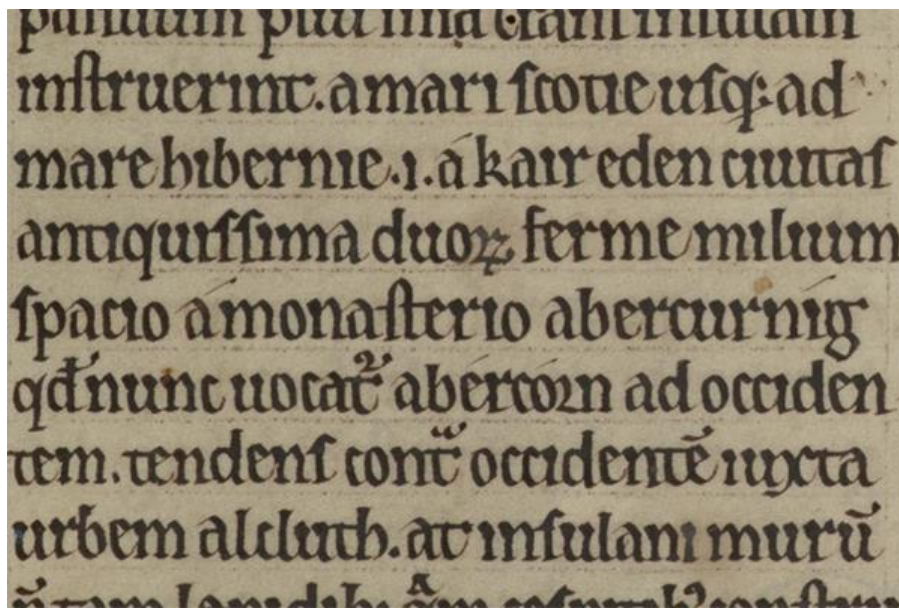 instruerint. a mari scotie usq; ad
mare hibernie .i. á kair eden ciuitas
antiquissima duoꝝ ferme milium
spacio á monasterio abercurnig
qđ nunc uocat᷑ abercorn ad occiden
tem. tendens cont̃ occidentē iuxta
urbem alcluth. at insulani murū